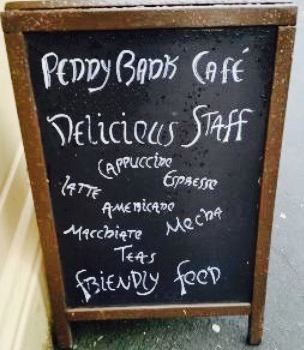 PEDDYBADK CAFÉ
DELICIOUS STAFF
CAPPUCCINO
LATTE ESPRESSO
AMERICANO
MACCHIATO MOCHA
TEAS
FRIENDLY FOOD